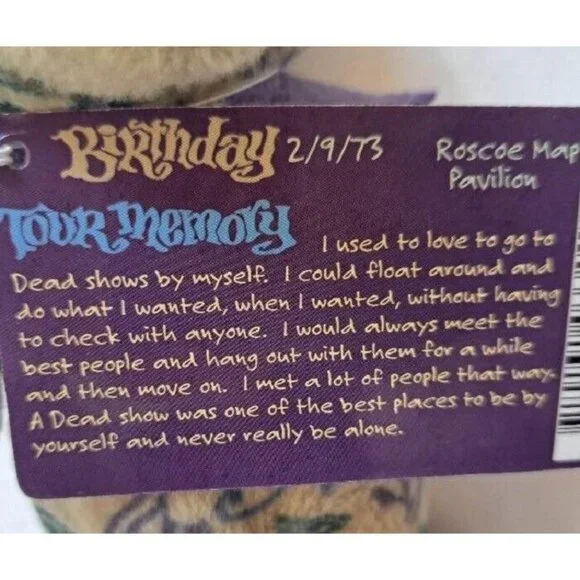 Birthday 2/9/73 Roscoe Map
Pavilion
Tour Memory I used to love to go to
Dead shows by myself. I could float around and
do what I wanted, when I wanted, without having
to check with anyone. I would always meet the
best people and hang out with them for a while
and then move on. I met a lot of people that way.
A Dead show was one of the best places to be by
yourself and never really be alone.